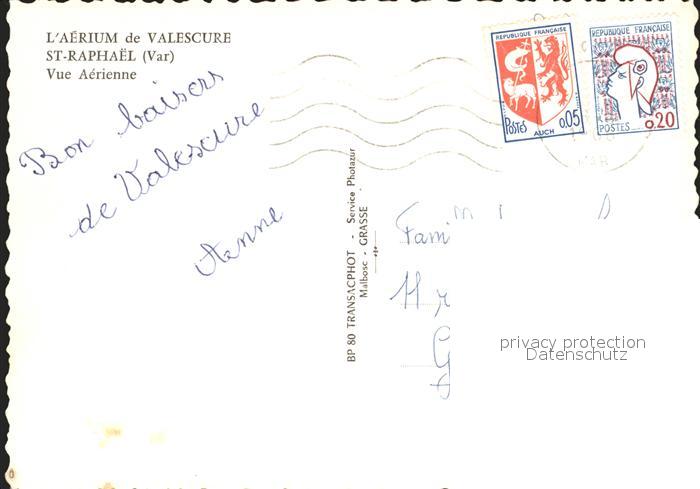 L'AÉRIUM de VALESCURE
ST-RAPHAËL (Var)
Vue Aérienne
Bon baisers
de Valescure
Anne
BP 80 TRANSACPHOT - Service Photazur
Malbosc - GRASSE -
REPUBLIQUE FRANÇAISE
POSTES 0,05
AUCH
REPUBLIQUE FRANÇAISE
POSTES 0,20
VAR
Fami
privacy protection
Datenschutz